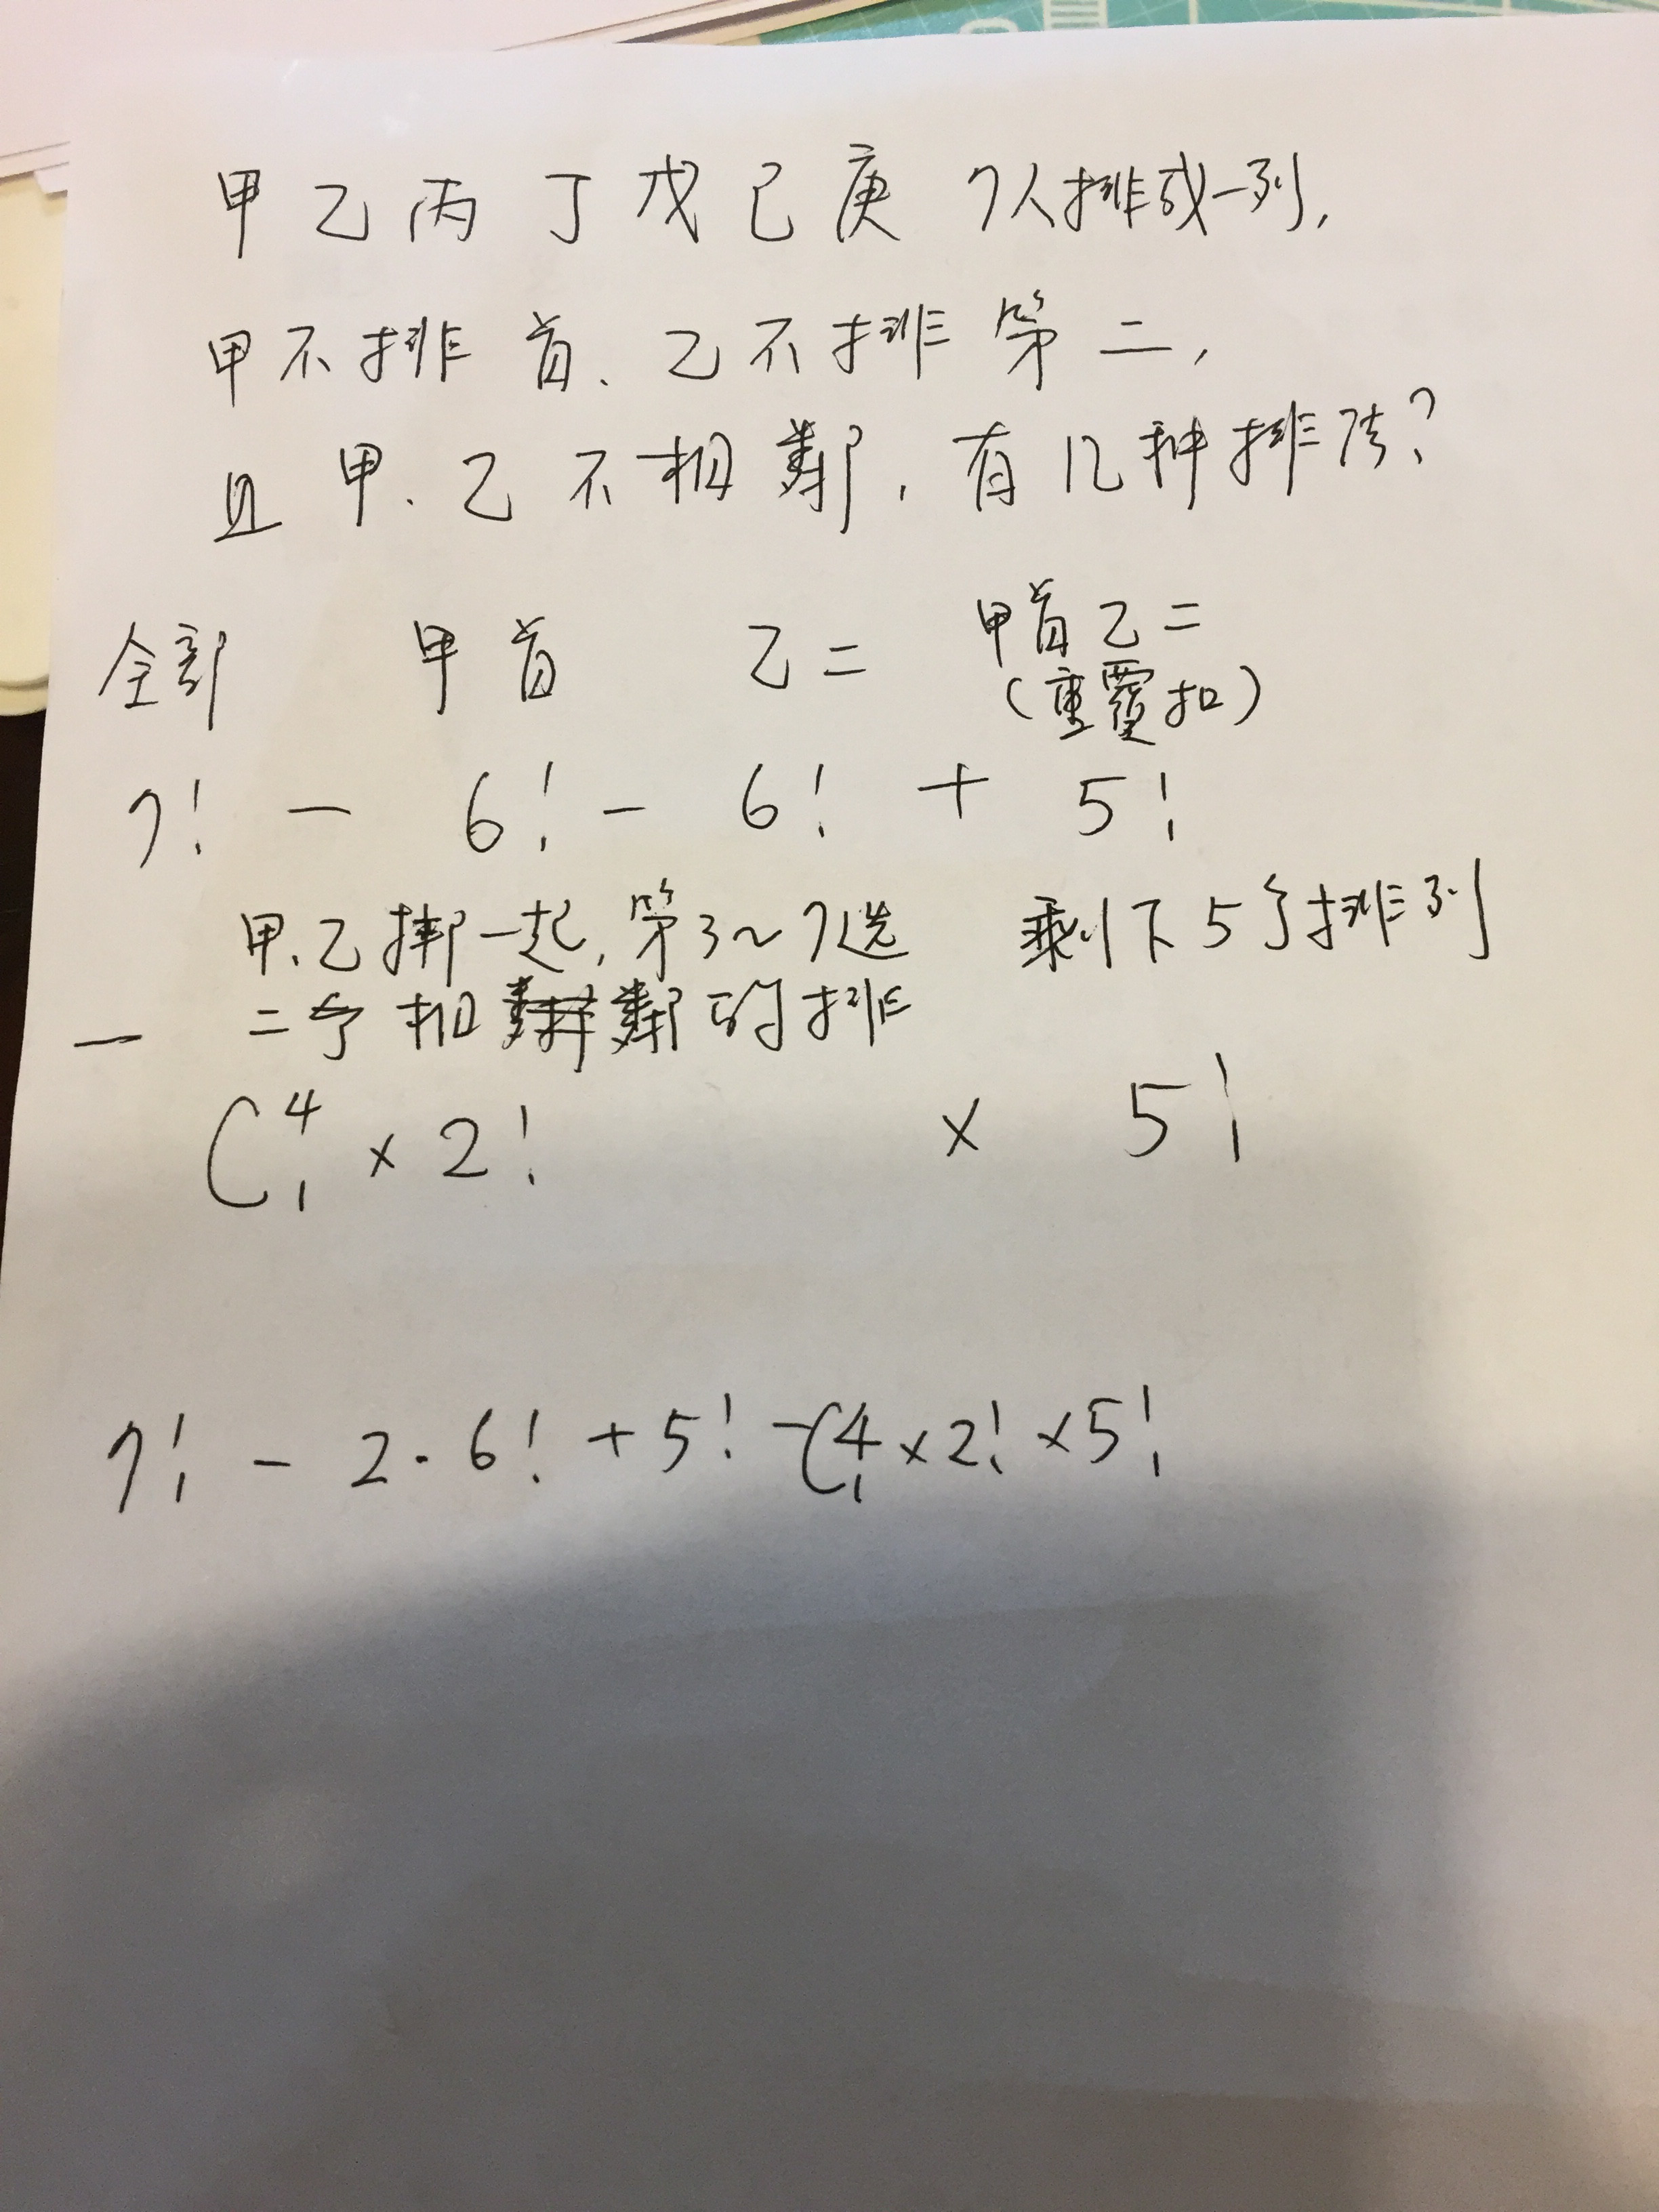 甲乙丙丁戊己庚 7人排成一列,
甲不排首、乙不排第二,
且甲、乙不相鄰,有几种排法?
全部 甲首 乙二 甲首乙二
(重覆扣)
7! - 6! - 6! + 5!
甲、乙捆一起,第3~7选 剩下5个排列
- 二个相鄰的排
C⁴₁ × 2! × 5!
7! - 2·6! + 5! - C⁴₁ × 2! × 5!